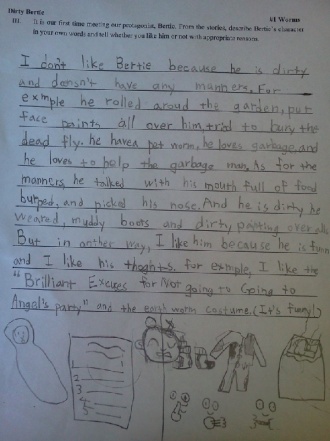 Dirty Bertie
#1 Worms
III. It is our first time meeting our protagonist, Bertie. From the stories, describe Bertie's character
in your own words and tell whether you like him or not with appropriate reasons.
I don't like Bertie because he is dirty
and doensn't have any munners. For
exmple he rolled aroud the garden, put
face paints all over him, tried to bury the
dead fly. he have a pet name, he loves garbage, and
he loves to help the garbage man. As for the
manners he talked with his mouth full of food
burped, and picked his nose. And he is dirty he
weared, muddy boots and dirty, panting overalls
But in onther way, I like him because he is funn
and I like his thoghts. for exmple, I like the
"Brilliant Excuses for Not going to Going to
Angal's party" and the earth worm costume. (It's funny!)
1
2
3
4
5